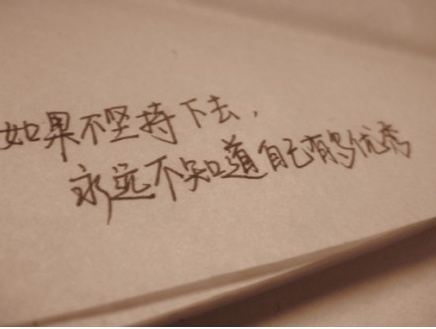 如果不坚持下去，
永远不知道自己有多优秀